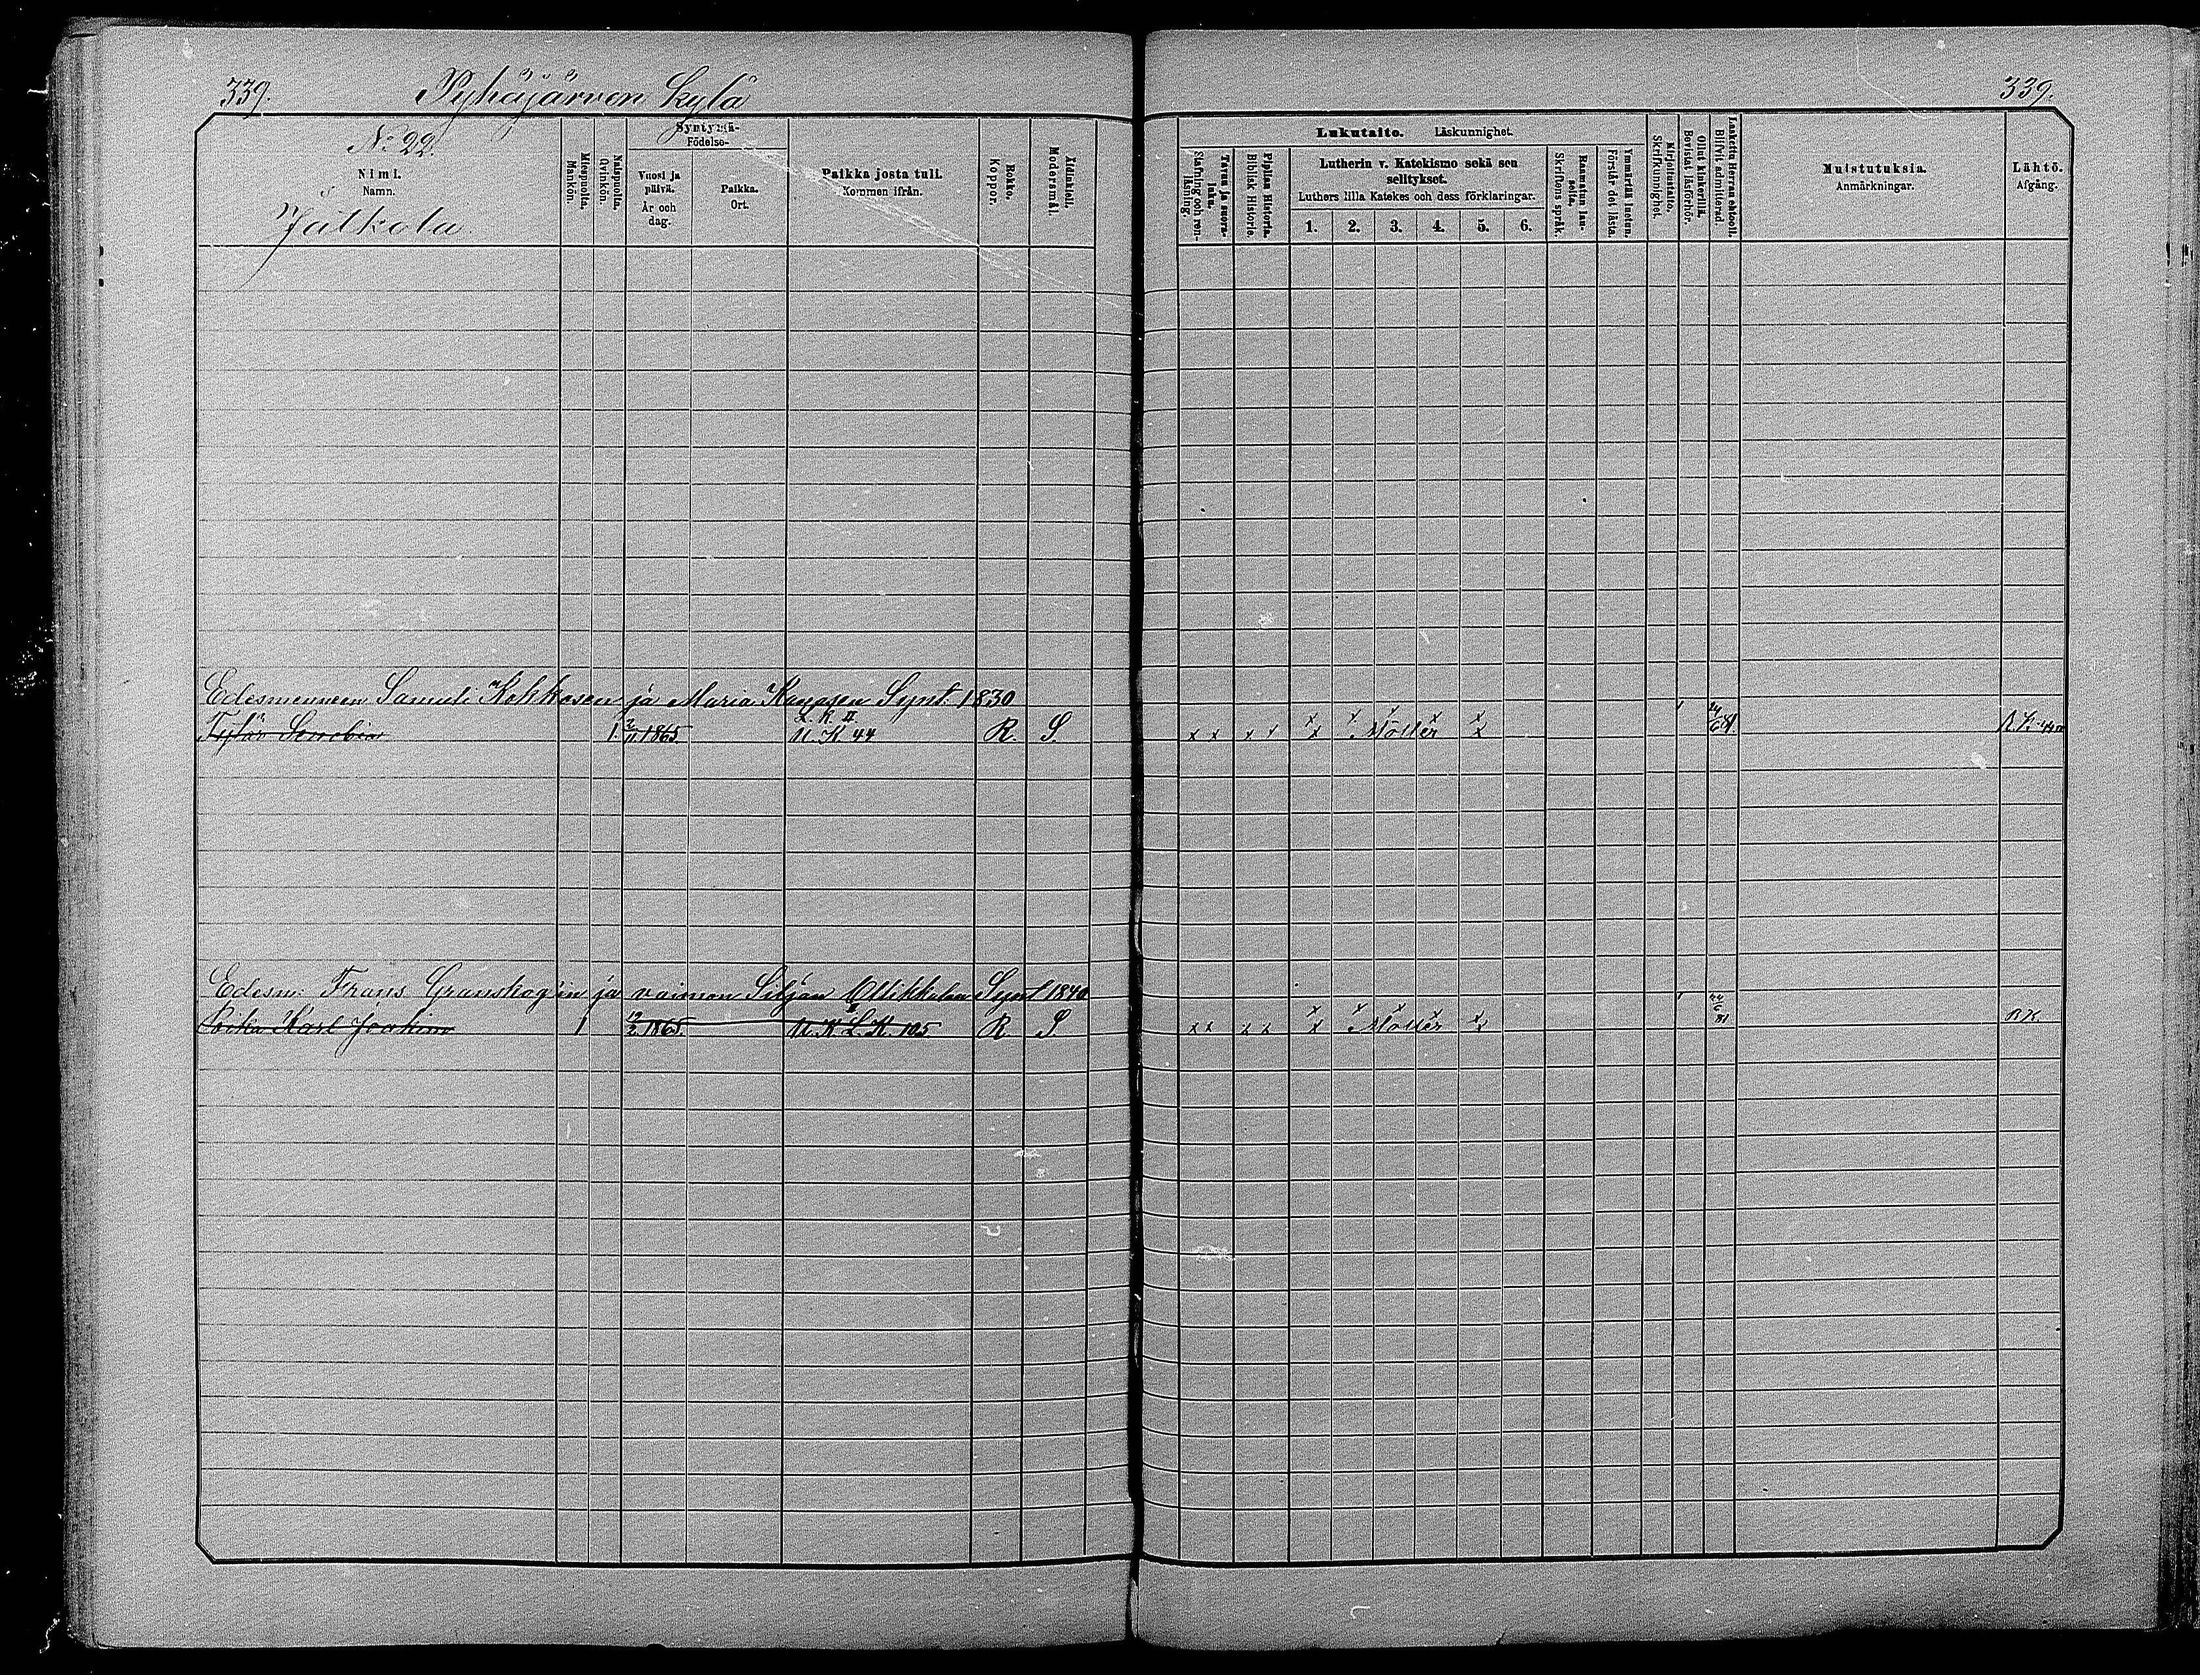 339. Pyhäjärven kylä
No: 22.
Nimi.
Namn.
Jälkola.
Miespuolia.
Mankön.
Naispuolia.
Qvinkön.
Syntymä-
Födelse-
Vuosi ja päivä.
År och dag.
Paikka.
Ort.
Paikka josta tuli.
Kommen ifrån.
Rokko.
Koppor.
Äidinkieli.
Modersmål.
Edesmenneen Samuli Kokkosen ja Maria Kauppsen Synt. 1830
1 2/11 1865. L. K II
U. K 44 R. S.
Edesm: Frans Granskog in ja vaimon Siljan Ollikkalan Synt 1840
Karl Joakim 1 12/2 1865. U. K. L. K. 105. R S
339.
Lukutaito. Läskunnighet.
Tavan ja suora-luku.
Stafning och ren-läsning.
Piplian Historia.
Biblisk Historie.
Lutherin v. Katekismo sekä sen
selitykset.
Luthers lilla Katekes och dess förklaringar.
1. 2. 3. 4. 5. 6.
Raamatun lau-seita.
Skriftens språk.
Ymmärtää luetun.
Förstår det lästa.
Kirjoitustaito.
Skrifkunnighet.
Ollut kinkerillä.
Bevistat läsförhör.
Laskettu Herran ehtool.
Blifvit admitterad.
Muistutuksia.
Anmärkningar.
Lähtö.
Afgång.
x x x x x x x Möller x x 24/6 81. R.K. 440
x x x x x x x Möller x x 24/6 81 R.K.